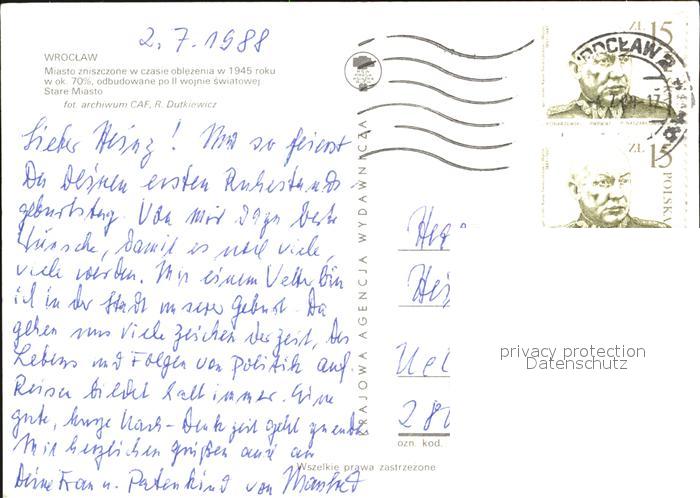 2.7.1988
WROCŁAW
Miasto zniszczone w czasie oblężenia w 1945 roku
w ok. 70%, odbudowane po II wojnie światowej
Stare Miasto
fot. archiwum CAF, R. Dutkiewicz
Lieber Heinz! Und so feierst
Du Deinen ersten Ruhestands
geburtstag. Von mir dazu beste
Wünsche, damit es noch viele,
viele werden. Mit einem Vetter bin
ich in der Stadt unserer Geburt. Da
gehen uns viele Zeichen der Zeit, des
Lebens und Folgen von Politik auf
Reisen bildet halt immer. Eine
gute, kurze Nach-Denkzeit geht zu ende
Mit herzlichen Grüßen auch an
Deine Frau u. Patenkind von Manfred
KRAJOWA AGENCJA WYDAWNICZA
ZŁ 15
WROCŁAW 2
ZŁ 15
POLSKA
Her
Hei
Uel
280
ozn. kod.
Wszelkie prawa zastrzeżone
privacy protection
Datenschutz